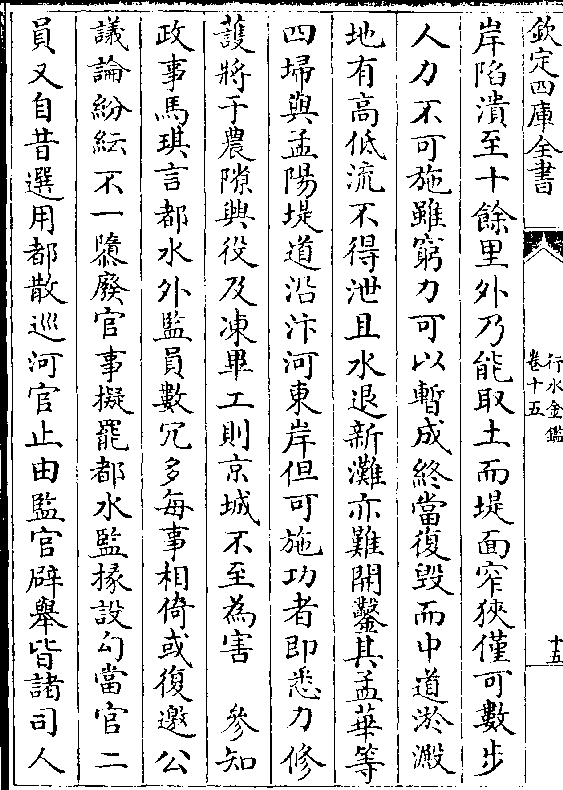 欽定四庫全書
行水金鑑
卷十五
十五
岸陷潰至十餘里外乃能取土而堤面窄狹僅可數步
人力不可施雖窮力可以暫成終當復毀而中道淤澱
地有高低流不得泄且水退新灘亦難開鑿其孟華等
四埽與孟陽堤道沿汴河東岸但可施功者即悉力修
䕶將于農隙興役及凍畢工則京城不至為害 參知
政事馬琪言都水外監員數冗多每事相倚或復邀公
議論紛紜不一隳廢官事擬罷都水監掾設勾當官二
員又自昔選用都散巡河官止由監官辟舉皆諸司人